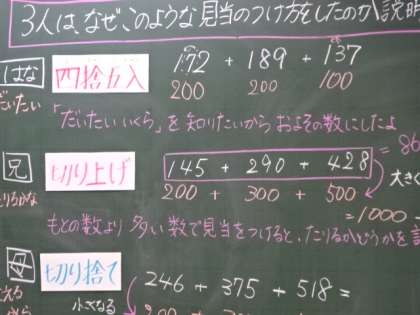 3人は、なぜ、このような見当のつけ方をしたのか説明
はな 四捨五入 172 + 189 + 137
200 200 100
だいたい 「だいたいいくら」を知りたいからおよその数にしたよ
兄 切り上げ 145 + 290 + 428 = 86
たりるかな 200 + 300 + 500 大きく
= 1000
もとの数より多い数で見当をつけると、たりるかどうかを
母 切り捨て 246 + 375 + 518 =
小さくなる